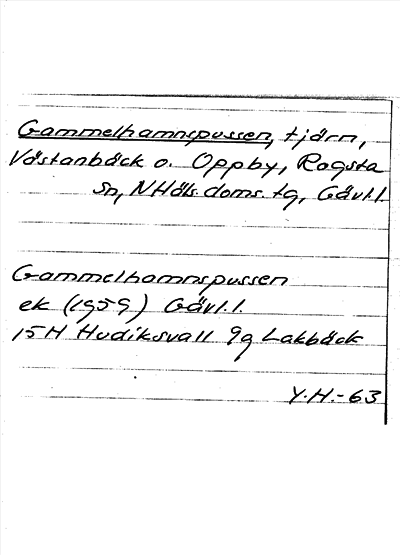 Gammelhamnspussen, tjärn,
Västanbäck o. Oppby, Rogsta
Sn, NHäls. doms. tg, Gävl.l.
Gammelhamnspussen
ek (1959) Gävl.l.
15H Hudiksvall 9g Lakbäck
Y.H.-63